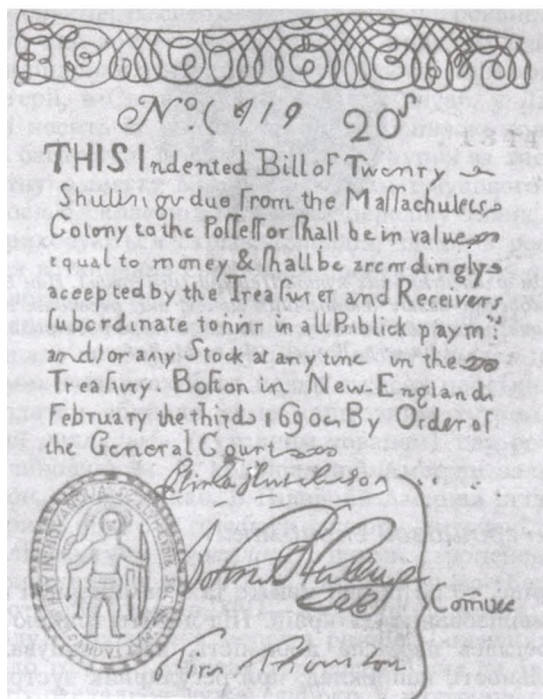 No. ( 919 20s
THIS Indented Bill of Twenty
Shillings due from the Massachusets
Colony to the Possessor shall be in value
equal to money & shall be accordingly
accepted by the Treasurer and Receivers
subordinate to him in all Publick paymts
and for any Stock at any time in the
Treasury. Boston in New England
February the third 1690. By Order of
the General Court
Comitee